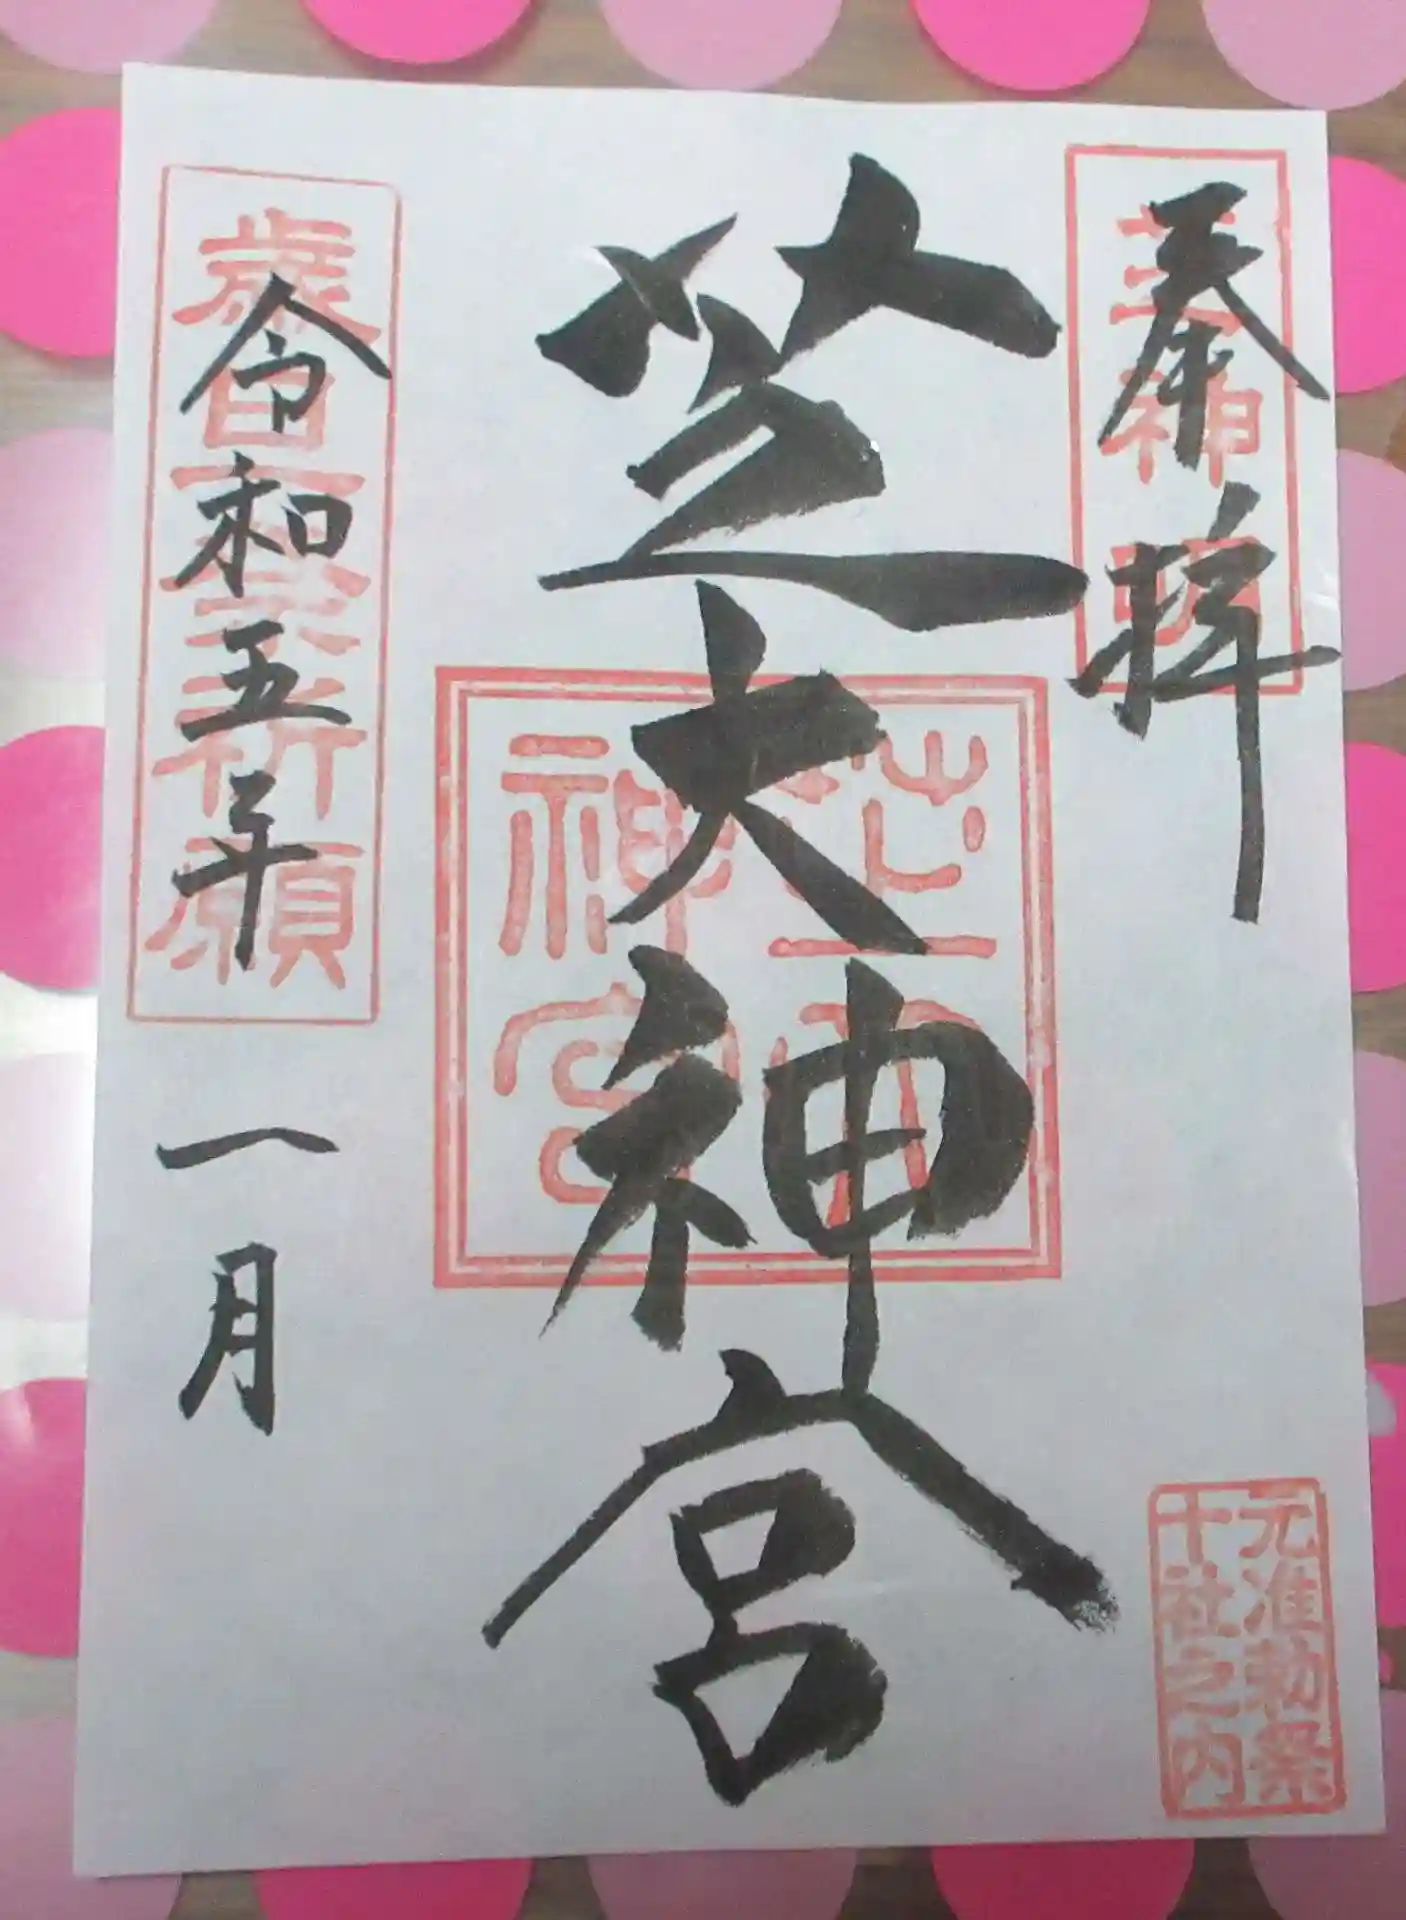 奉拝
芝神明
芝大神宮
芝大神宮
令和五年一月
歳旦祭祈願
元准勅祭
十社之内